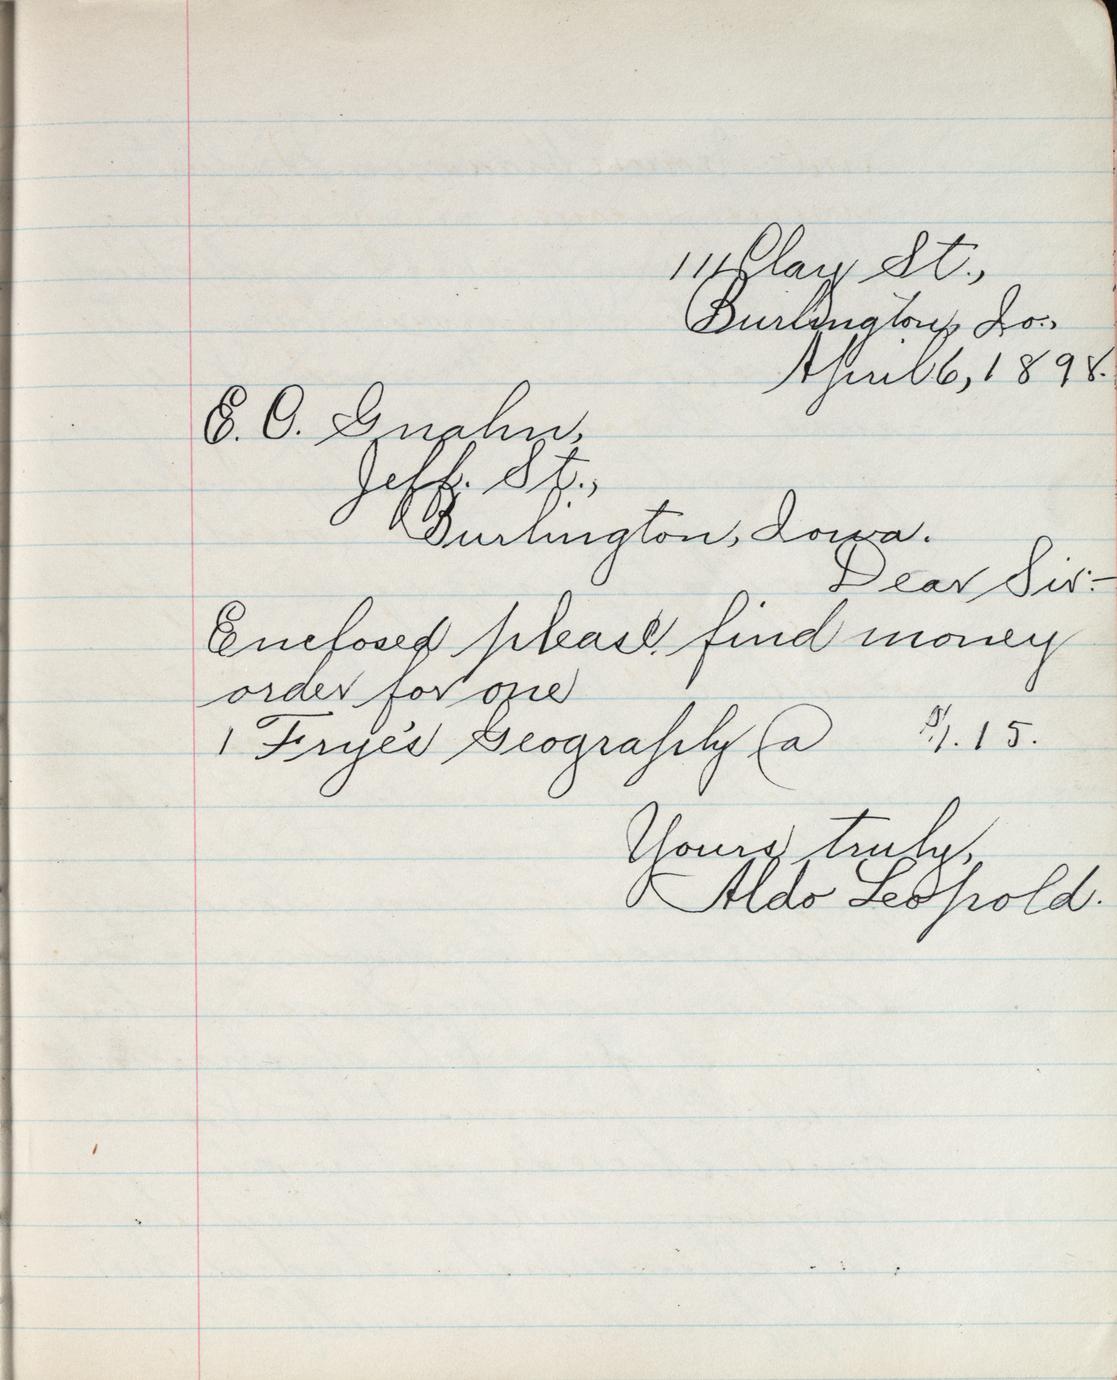 111 Clay St.,
Burlington, Io.,
April 6, 1898.
E. O. Gnahn,
Jeff. St.,
Burlington, Iowa.
Dear Sir:-
Enclosed please find money
order for one
1 Frye's Geography @ $1.15.
Yours truly,
Aldo Leopold.